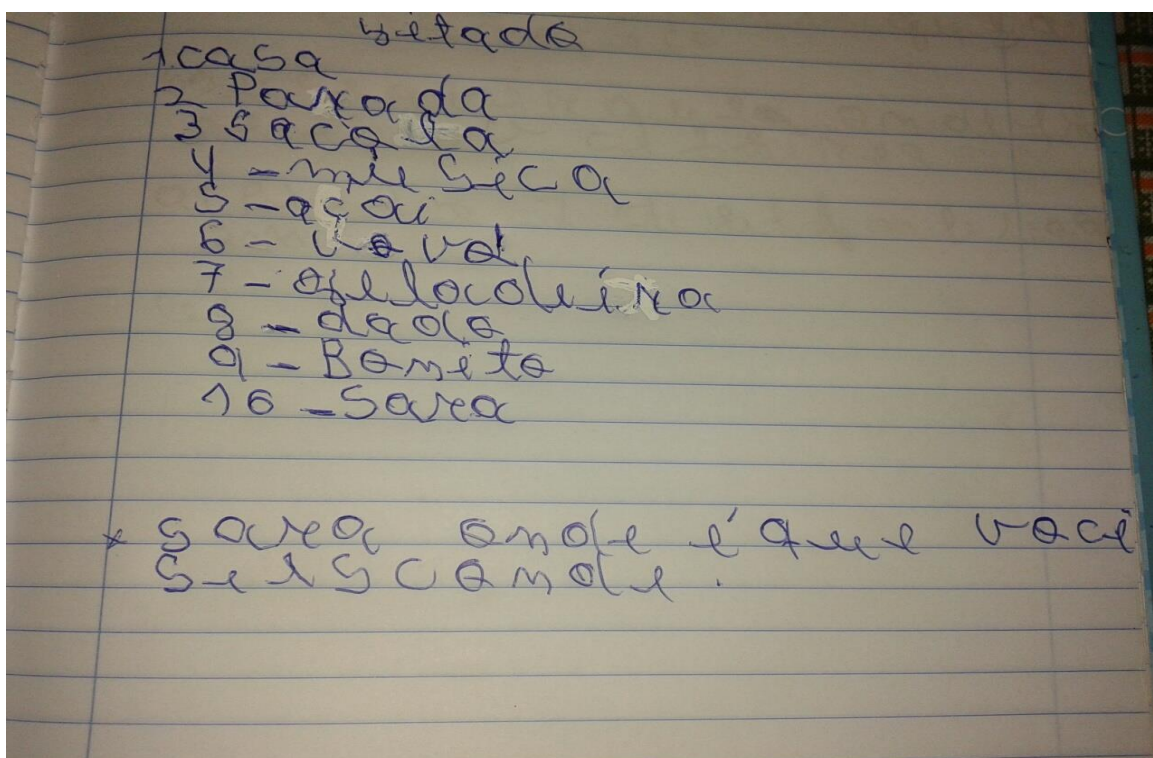 ditado
1 casa
2 Parada
3 Sacola
4 - muSica
5 - açai
6 - vovo
7 - geladeira
8 - dado
9 - Bonito
10 - Sara
* Sara onde é que voce
Se esconde.